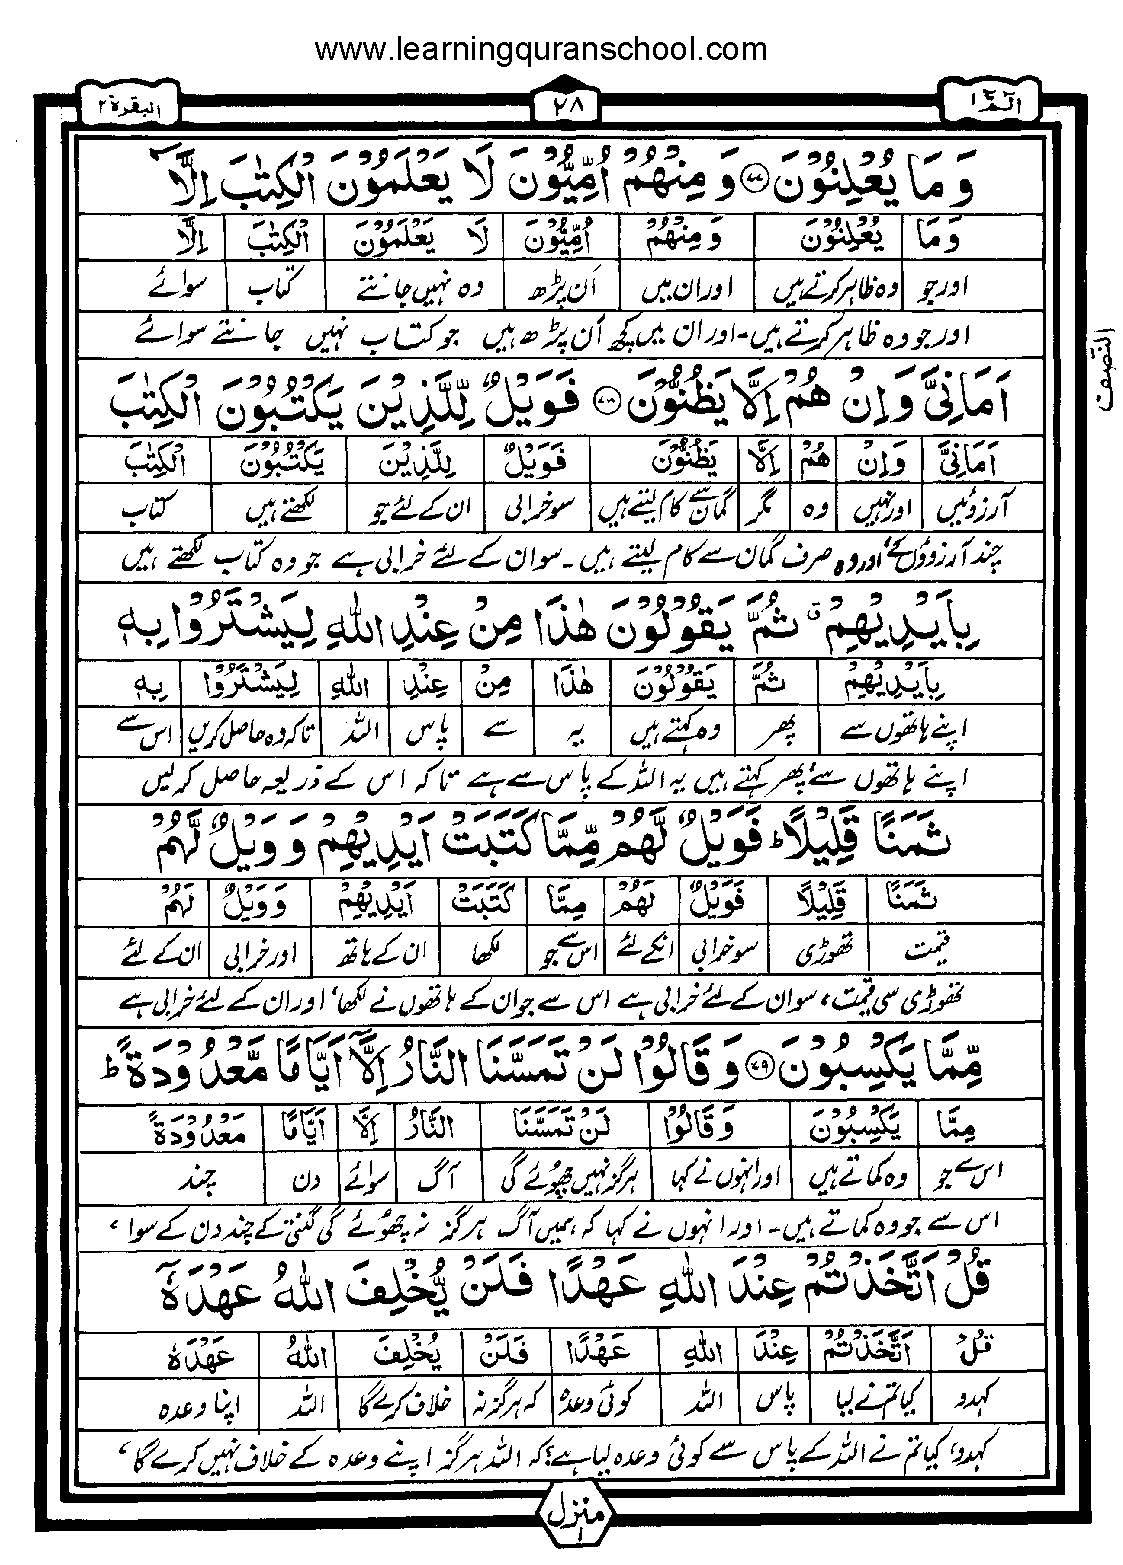 www.learningquranschool.com
الٓمّٓ ۱ ۲۸ البقرة ۲
وَمَا يُعْلِنُوْنَ ۝۷۷ وَمِنْهُمْ اُمِّيُّوْنَ لَا يَعْلَمُوْنَ الْكِتٰبَ اِلَّآ
وَمَا يُعْلِنُوْنَ وَمِنْهُمْ اُمِّيُّوْنَ لَا يَعْلَمُوْنَ الْكِتٰبَ اِلَّا
اور جو وہ ظاہر کرتے ہیں اور ان میں اَن پڑھ وہ نہیں جانتے کتاب سوائے
اور جو وہ ظاہر کرتے ہیں۔ اور ان میں کچھ اَن پڑھ ہیں جو کتاب نہیں جانتے سوائے
النصف
اَمَانِىَّ وَاِنْ هُمْ اِلَّا يَظُنُّوْنَ ۝۷۸ فَوَيْلٌ لِّلَّذِيْنَ يَكْتُبُوْنَ الْكِتٰبَ
اَمَانِىَّ وَاِنْ هُمْ اِلَّا يَظُنُّوْنَ فَوَيْلٌ لِلَّذِيْنَ يَكْتُبُوْنَ الْكِتٰبَ
آرزوئیں اور نہیں وہ مگر گمان سے کام لیتے ہیں سو خرابی ان کے لئے جو لکھتے ہیں کتاب
چند آرزوؤں کے، اور وہ صرف گمان سے کام لیتے ہیں۔ سو ان کے لئے خرابی ہے جو وہ کتاب لکھتے ہیں
بِاَيْدِيْهِمْ ۚ ثُمَّ يَقُوْلُوْنَ هٰذَا مِنْ عِنْدِ اللّٰهِ لِيَشْتَرُوْا بِهٖ
بِاَيْدِيْهِمْ ثُمَّ يَقُوْلُوْنَ هٰذَا مِنْ عِنْدِ اللّٰهِ لِيَشْتَرُوْا بِهٖ
اپنے ہاتھوں سے پھر وہ کہتے ہیں یہ سے پاس اللہ تاکہ وہ حاصل کریں اس سے
اپنے ہاتھوں سے، پھر کہتے ہیں یہ اللہ کے پاس سے ہے تاکہ اس کے ذریعہ حاصل کرلیں
ثَمَنًا قَلِيْلًا ؕ فَوَيْلٌ لَّهُمْ مِّمَّا كَتَبَتْ اَيْدِيْهِمْ وَوَيْلٌ لَّهُمْ
ثَمَنًا قَلِيْلًا فَوَيْلٌ لَهُمْ مِمَّا كَتَبَتْ اَيْدِيْهِمْ وَوَيْلٌ لَهُمْ
قیمت تھوڑی سو خرابی انکے لئے اس سے جو لکھا ان کے ہاتھ اور خرابی ان کے لئے
تھوڑی سی قیمت، سو ان کے لئے خرابی ہے اس سے جو ان کے ہاتھوں نے لکھا، اور ان کے لئے خرابی ہے
مِّمَّا يَكْسِبُوْنَ ۝۷۹ وَقَالُوْا لَنْ تَمَسَّنَا النَّارُ اِلَّآ اَيَّامًا مَّعْدُوْدَةً ؕ
مِمَّا يَكْسِبُوْنَ وَقَالُوْا لَنْ تَمَسَّنَا النَّارُ اِلَّا اَيَّامًا مَعْدُوْدَةً
اس سے جو وہ کماتے ہیں اور انہوں نے کہا ہرگز نہیں چھوئے گی آگ سوائے دن چند
اس سے جو وہ کماتے ہیں۔ اور انہوں نے کہا کہ ہمیں آگ ہرگز نہ چھوئے گی گنتی کے چند دن کے سوا،
قُلْ اَتَّخَذْتُمْ عِنْدَ اللّٰهِ عَهْدًا فَلَنْ يُّخْلِفَ اللّٰهُ عَهْدَهٗٓ
قُلْ اَتَّخَذْتُمْ عِنْدَ اللّٰهِ عَهْدًا فَلَنْ يُخْلِفَ اللّٰهُ عَهْدَهٗ
کہدو کیا تم نے لیا پاس اللہ کوئی وعدہ کہ ہرگز نہ خلاف کرے گا اللہ اپنا وعدہ
کہدو، کیا تم نے اللہ کے پاس سے کوئی وعدہ لیا ہے؟ کہ اللہ ہرگز اپنے وعدہ کے خلاف نہیں کرے گا،
منزل ۱